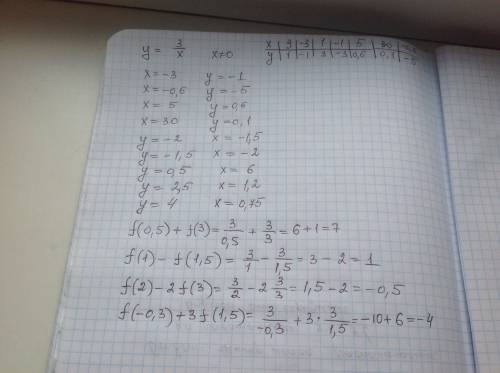 y = 3/x x≠0
x 3 -3 1 -1 5 30 -0,6
y 1 -1 3 -3 0,6 0,1 -5
x=-3 y=-1
x=-0,6 y=-5
x=5 y=0,6
x=30 y=0,1
y=-2 x=-1,5
y=-1,5 x=-2
y=0,5 x=6
y=2,5 x=1,2
y=4 x=0,75
f(0,5)+f(3)=3/0,5+3/3=6+1=7
f(1)-f(1,5)=3/1-3/1,5=3-2=1
f(2)-2f(3)=3/2-2 3/3=1,5-2=-0,5
f(-0,3)+3f(1,5)=3/-0,3+3·3/1,5=-10+6=-4